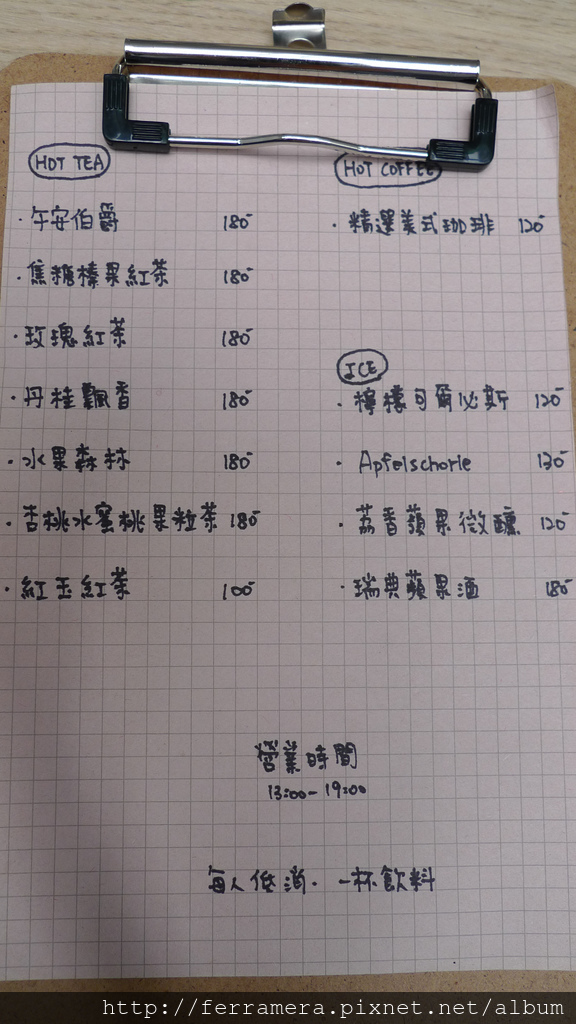 HOT TEA
· 午安伯爵 180-
· 焦糖榛果紅茶 180-
· 玫瑰紅茶 180-
· 丹桂飄香 180-
· 水果森林 180-
· 杏桃水蜜桃果粒茶 180-
· 紅玉紅茶 100-
HOT COFFEE
· 精選美式咖啡 120-
ICE
· 檸檬可爾必斯 120-
· Apfelschorle 120-
· 荔香蘋果微醺 120-
· 瑞典蘋果酒 180-
營業時間
13:00-19:00
每人低消·一杯飲料
http://ferramera.pixnet.net/album